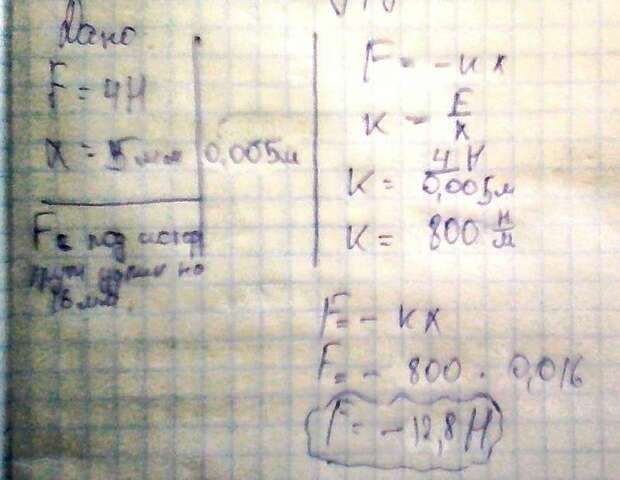 Дано
F = 4Н
x = 5мм 0,005м
F₂ под котор
пруж удлин на
16 мм.
F = -kx
k = F/x
k = 4 Н/0,005м
k = 800 Н/м
F = - kx
F = - 800 · 0,016
F = -12,8Н